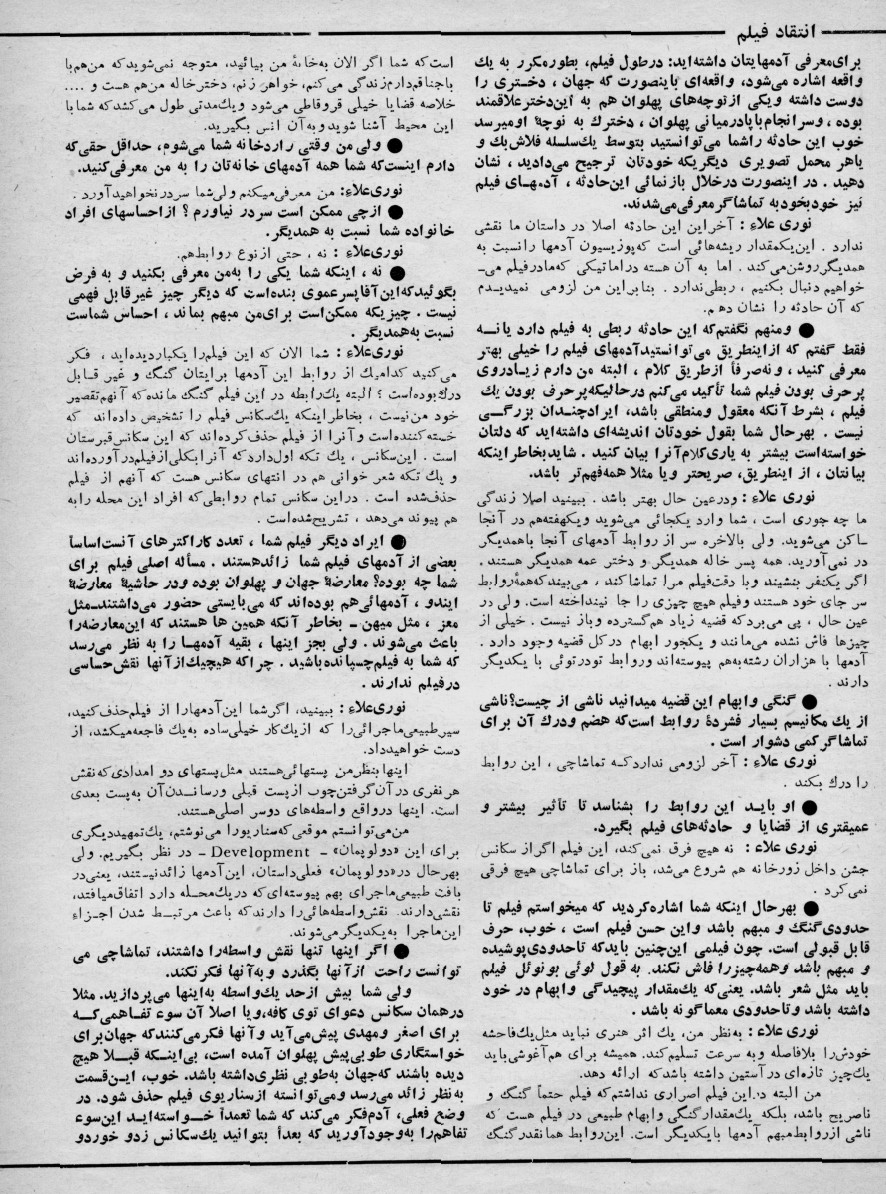 انتقاد فیلم
برای‌معرفی آدمهایتان داشته‌اید: درطول فیلم، بطورمکرر به یك
واقعه اشاره می‌شود، واقعه‌ای باینصورت که جهان ، دختری را
دوست داشته ویکی ازنوچه‌های پهلوان هم به این‌دخترعلاقمند
بوده ، وسرانجام باپادرمیانی پهلوان ، دخترك به نوچهٔ اومیرسد
خوب این حادثه راشما می‌توانستید بتوسط یك‌سلسله فلاش‌بك و
یاهر محمل تصویری دیگریکه خودتان ترجیح می‌دادید ، نشان
دهید . در اینصورت درخلال بازنمائی این‌حادثه ، آدمهای فیلم
نیز خودبخودبه تماشاگر معرفی‌می‌شدند.
نوری علاء : آخراین این حادثه اصلا در داستان ما نقشی
ندارد . این‌یکمقدار ریشه‌هائی است که‌پوزیسیون آدمها رانسبت به
همدیگرروشن‌می‌کند . اما به آن هسته دراماتیکی که‌مادرفیلم می-
خواهیم دنبال بکنیم ، ربطی‌ندارد . بنابراین من لزومی نمیدیدم
که آن حادثه را نشان دهم.
● ومنهم نگفتم‌که این حادثه ربطی به فیلم دارد یانه
فقط گفتم که ازاینطریق می‌توانستیدآدمهای فیلم را خیلی بهتر
معرفی کنید ، ونه‌صرفاً ازطریق کلام ، البته من دارم زیادروی
پرحرف بودن فیلم شما تأکید می‌کنم درحالیکه‌پرحرف بودن یك
فیلم ، بشرط آنکه معقول ومنطقی باشد، ایرادچندان بزرگی
نیست . بهرحال شما بقول خودتان اندیشه‌ای داشته‌اید که دلتان
خواسته‌است بیشتر به یاری‌کلام‌آنرا بیان کنید . شایدبخاطراینکه
بیانتان ، از اینطریق، صریحتر ویا مثلا همه‌فهم‌تر باشد.
نوری علاء : ودرعین حال بهتر باشد . ببینید اصلا زندگی
ما چه جوری است ، شما وارد یکجائی می‌شوید ویکهفته‌هم در آنجا
ساکن می‌شوید. ولی بالاخره سر از روابط آدمهای آنجا باهمدیگر
در نمی‌آورید. همه پسر خاله همدیگر و دختر عمه همدیگر هستند .
اگر یکنفر بنشیند وبا دقت‌فیلم مرا تماشاکند ، می‌بیندکه‌همهٔ‌روابط
سر جای خود هستند وفیلم هیچ چیزی را جا نینداخته است. ولی در
عین حال ، پی می‌بردکه قضیه زیاد هم‌گسترده وباز نیست . خیلی از
چیزها فاش نشده می‌مانند و یکجور ابهام درکل قضیه وجود دارد .
آدمها با هزاران رشته‌بهم پیوسته‌اند وروابط تودرتوئی با یکدیگر
دارند .
● گنگی وابهام این‌قضیه میدانید ناشی از چیست؟ناشی
از یك مکانیسم بسیار فشردهٔ روابط است‌که هضم ودرك آن برای
تماشاگر کمی دشوار است .
نوری علاء : آخر لزومی نداردکه تماشاچی ، این روابط
را درك بکند .
● او باید این روابط را بشناسد تا تأثیر بیشتر و
عمیقتری از قضایا و حادثه‌های فیلم بگیرد.
نوری علاء : نه هیچ فرق نمی‌کند، این فیلم اگراز سکانس
جشن داخل زورخانه هم شروع می‌شد، باز برای تماشاچی هیچ فرقی
نمی‌کرد .
● بهرحال اینکه شما اشاره‌کردید که میخواستم فیلم تا
حدودی‌گنگ و مبهم باشد واین حسن فیلم است ، خوب، حرف
قابل قبولی است. چون فیلمی این‌چنین بایدکه تاحدودی‌پوشیده
و مبهم باشد وهمه‌چیزرا فاش نکند. به قول لوئی بونوئل فیلم
باید مثل شعر باشد. یعنی‌که یك‌مقدار پیچیدگی وابهام در خود
داشته باشد وتاحدودی معماگونه باشد .
نوری علاء : به‌نظر من، یك اثر هنری نباید مثل‌یك‌فاحشه
خودش‌را بلافاصله وبه سرعت تسلیم‌کند. همیشه برای هم‌آغوشی‌باید
یك‌چیز تازه‌ای درآستین داشته باشدکه ارائه دهد.
من البته در.این فیلم اصراری نداشتم‌که فیلم حتماً گنگ و
ناصریح باشد، بلکه یك‌مقدارگنگی وابهام طبیعی در فیلم هست که
ناشی ازروابط‌مبهم آدمها بایکدیگر است. این‌روابط همانقدرگنگ
است‌که شما اگر الان به‌خانهٔ من بیائید، متوجه نمی‌شویدکه من‌هم‌با
باجناقم‌دارم‌زندگی می‌کنم، خواهر زنم، دخترخاله من‌هم هست و ....
خلاصه قضایا خیلی قروقاطی می‌شود ویك‌مدتی طول می‌کشدکه شما با
این محیط آشنا شوید وبه‌آن انس بگیرید.
● ولی من وقتی واردخانه شما می‌شوم، حداقل حقی‌که
دارم اینست‌که شما همه آدمهای خانه‌تان را به من معرفی‌کنید.
نوری‌علاء: من معرفی‌میکنم ولی‌شما سردرنخواهیدآورد .
● ازچی ممکن است سردر نیاورم ؟ ازاحساسهای افراد
خانواده شما نسبت به همدیگر.
نوری‌علاء : نه ، حتی ازنوع روابط‌هم.
● نه ، اینکه شما یکی را به‌من معرفی بکنید و به فرض
بگوئیدکه‌این‌آقاپسرعموی بنده‌است که دیگر چیز غیرقابل فهمی
نیست . چیزیکه ممکن‌است برای‌من مبهم بماند ، احساس شماست
نسبت به‌همدیگر .
نوری‌علاء : شما الان که این فیلم‌را یکباردیده‌اید ، فکر
می‌کنید کدامیك از روابط این آدمها برایتان گنگ و غیر قابل
درك‌بوده‌است ؟ البته یك‌رابطه در این فیلم گنگ مانده‌که آنهم‌تقصیر
خود من‌نیست ، بخاطراینکه یك‌سکانس فیلم را تشخیص داده‌اند که
خسته‌کننده‌است و آنرا از فیلم حذف‌کرده‌اند که این سکانس‌قبرستان
است . این‌سکانس ، یك تکه اول‌داردکه آنرابکلی‌ازفیلم‌درآورده‌اند
و یك تکه شعر خوانی هم در انتهای سکانس هست که آنهم از فیلم
حذف‌شده است . دراین سکانس تمام روابطی‌که افراد این محله رابه
هم پیوند می‌دهد ، تشریح‌شده‌است .
● ایراد دیگر فیلم شما ، تعدد کاراکترهای آنست‌اساساً
بعضی از آدمهای فیلم شما زائدهستند . مسأله اصلی فیلم برای
شما چه بوده؟ معارضهٔ جهان و پهلوان بوده ودر حاشیهٔ معارضهٔ
ایندو ، آدمهائی‌هم بوده‌اند که می‌بایستی حضور می‌داشتند-مثل
معز ، مثل میهن - بخاطر آنکه همین ها هستند که این‌معارضه‌را
باعث می‌شوند . ولی بجز اینها ، بقیه آدمها را به نظر می‌رسد
که شما به فیلم‌چسپانده‌باشید . چراکه هیچیك‌ازآنها نقش‌حساسی
درفیلم ندارند .
نوری‌علاء : ببینید، اگرشما این‌آدمهارا از فیلم‌حذف‌کنید،
سیرطبیعی‌ماجرائی‌را که ازیك‌کار خیلی‌ساده به‌یك فاجعه‌میکشد، از
دست خواهیدداد.
اینها بنظرمن پستهائی‌هستند مثل‌پستهای دو امدادی‌که‌نقش
هرنفری درآن‌گرفتن‌چوب ازپست قبلی ورساندن‌آن به‌پست بعدی
است. اینها درواقع واسطه‌های دوسر اصلی‌هستند.
من‌می‌توانستم موقعی‌که‌سناریورا می‌نوشتم، یك‌تمهیددیگری
برای این «دولوپمان» - Development - در نظر بگیریم. ولی
بهرحال در«دولوپمان» فعلی‌داستان، این‌آدمها زائدنیستند، یعنی‌در
بافت طبیعی‌ماجرای بهم پیوسته‌ای‌که دریك‌محله دارد اتفاق‌میافتد،
نقشی‌دارند. نقش‌واسطه‌هائی‌را دارندکه باعث مرتبط شدن اجزاء
این‌ماجرا به‌یکدیگرمی‌شوند.
● اگر اینها تنها نقش واسطه‌را داشتند، تماشاچی می
توانست راحت ازآنها بگذرد وبه‌آنها فکرنکند.
ولی شما بیش ازحد یك‌واسطه به‌اینها می‌پردازید. مثلا
درهمان سکانس دعوای توی کافه،ویا اصلا آن سوء تفاهمی‌که
برای اصغر ومهدی پیش‌می‌آید وآنها فکرمی‌کنندکه جهان‌برای
خواستگاری طوبی‌پیش پهلوان آمده است، بی‌اینکه قبلا هیچ
دیده باشندکه‌جهان به‌طوبی نظری‌داشته باشد. خوب، این‌قسمت
به‌نظر زائد می‌رسد ومی‌توانسته ازسناریوی فیلم حذف شود. در
وضع فعلی، آدم‌فکر می‌کند که شما تعمداً خواسته‌اید این‌سوء
تفاهم‌را به‌وجودآورید که بعداً بتوانید یك‌سکانس زدو خوردو